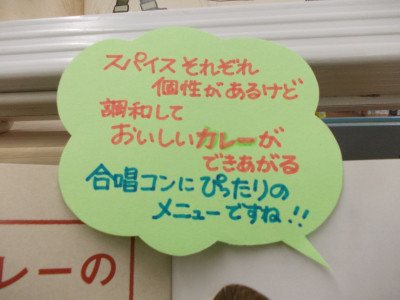 スパイスそれぞれ
個性があるけど
調和して
おいしいカレーが
できあがる
合唱コンにぴったりの
メニューですね!!
レーの